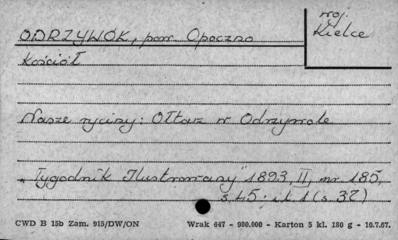 woj.
Kielce
ODRZYWÓK, pow. Opoczno
Kościół
Nasze ryciny: Ołtarz w Odrzywole
"Tygodnik Ilustrowany" 1893, II, nr 185,
s. 45: il. 1 (s. 37)
CWD B 15b Zam. 915/DW/ON Wrak 447 - 980.000 - Karton 5 kl. 180 g - 10.7.67.